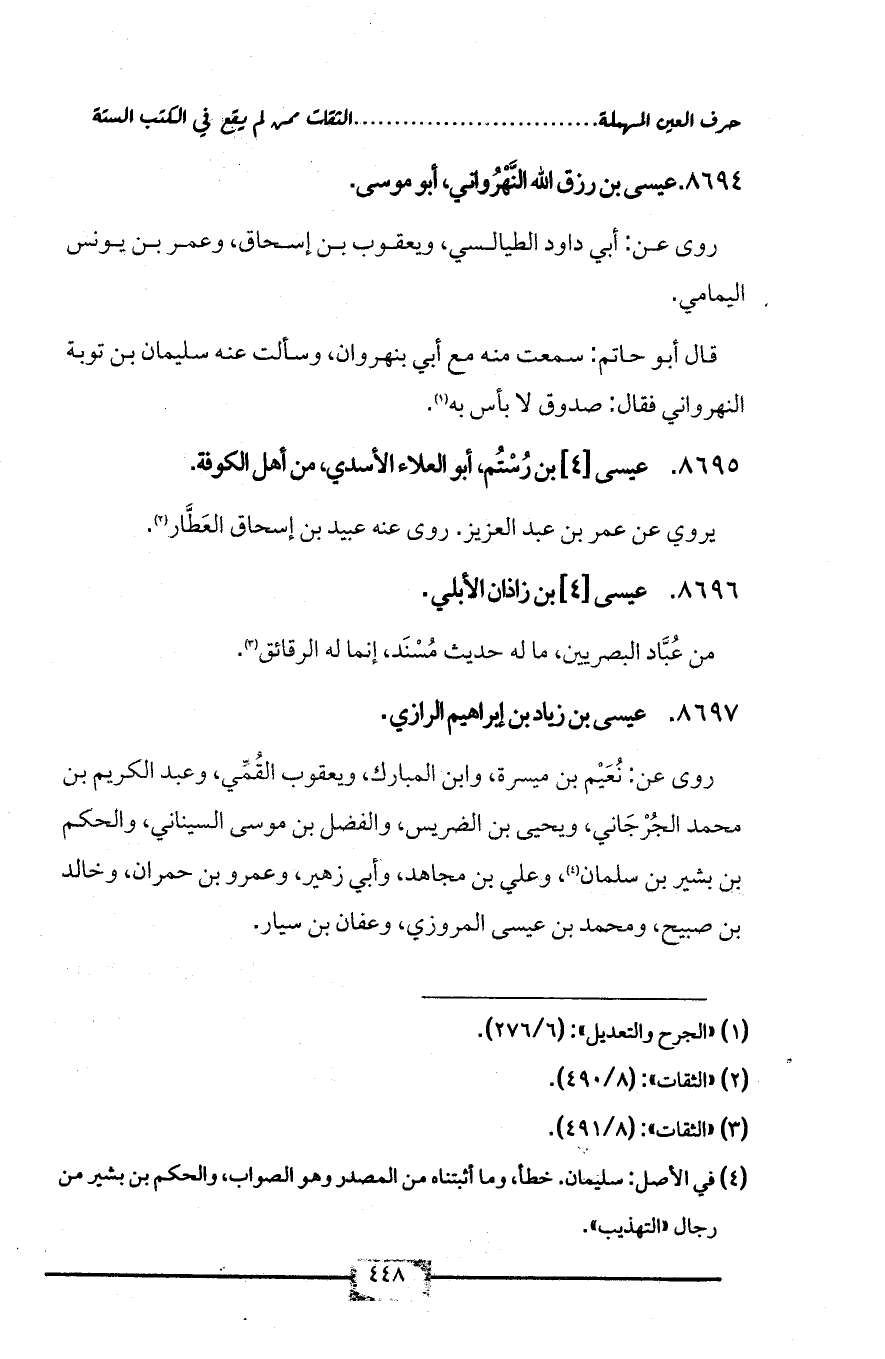 حرف العين المهملة............................الثقات ممن لم يقع في الكتب الستة
٨٦٩٤.عيسى بن رزق الله النَّهْرُواني، أبو موسى.
روى عن: أبي داود الطيالسي، ويعقوب بن إسحاق، وعمر بن يونس
اليمامي.
قال أبو حاتم: سمعت منه مع أبي بنهروان، وسألت عنه سليمان بن توبة
النهرواني فقال: صدوق لا بأس به(١).
٨٦٩٥. عيسى [٤] بن رُسْتُم، أبو العلاء الأسدي، من أهل الكوفة.
يروي عن عمر بن عبد العزيز. روى عنه عبيد بن إسحاق العَطَّار(٢).
٨٦٩٦. عيسى [٤] بن زاذان الأبلي.
من عُبَّاد البصريين، ما له حديث مُسْنَد، إنما له الرقائق(٣).
٨٦٩٧. عيسى بن زياد بن إبراهيم الرازي.
روى عن: نُعَيْم بن ميسرة، وابن المبارك، ويعقوب القُمِّي، وعبد الكريم بن
محمد الجُرْجَاني، ويحيى بن الضريس، والفضل بن موسى السيناني، والحكم
بن بشير بن سلمان(٤)، وعلي بن مجاهد، وأبي زهير، وعمرو بن حمران، وخالد
بن صبيح، ومحمد بن عيسى المروزي، وعفان بن سيار.
(١) «الجرح والتعديل»: (٢٧٦/٦).
(٢) «الثقات»: (٤٩٠/٨).
(٣) «الثقات»: (٤٩١/٨).
(٤) في الأصل: سليمان. خطأ، وما أثبتناه من المصدر وهو الصواب، والحكم بن بشير من
رجال «التهذيب».
٤٤٨